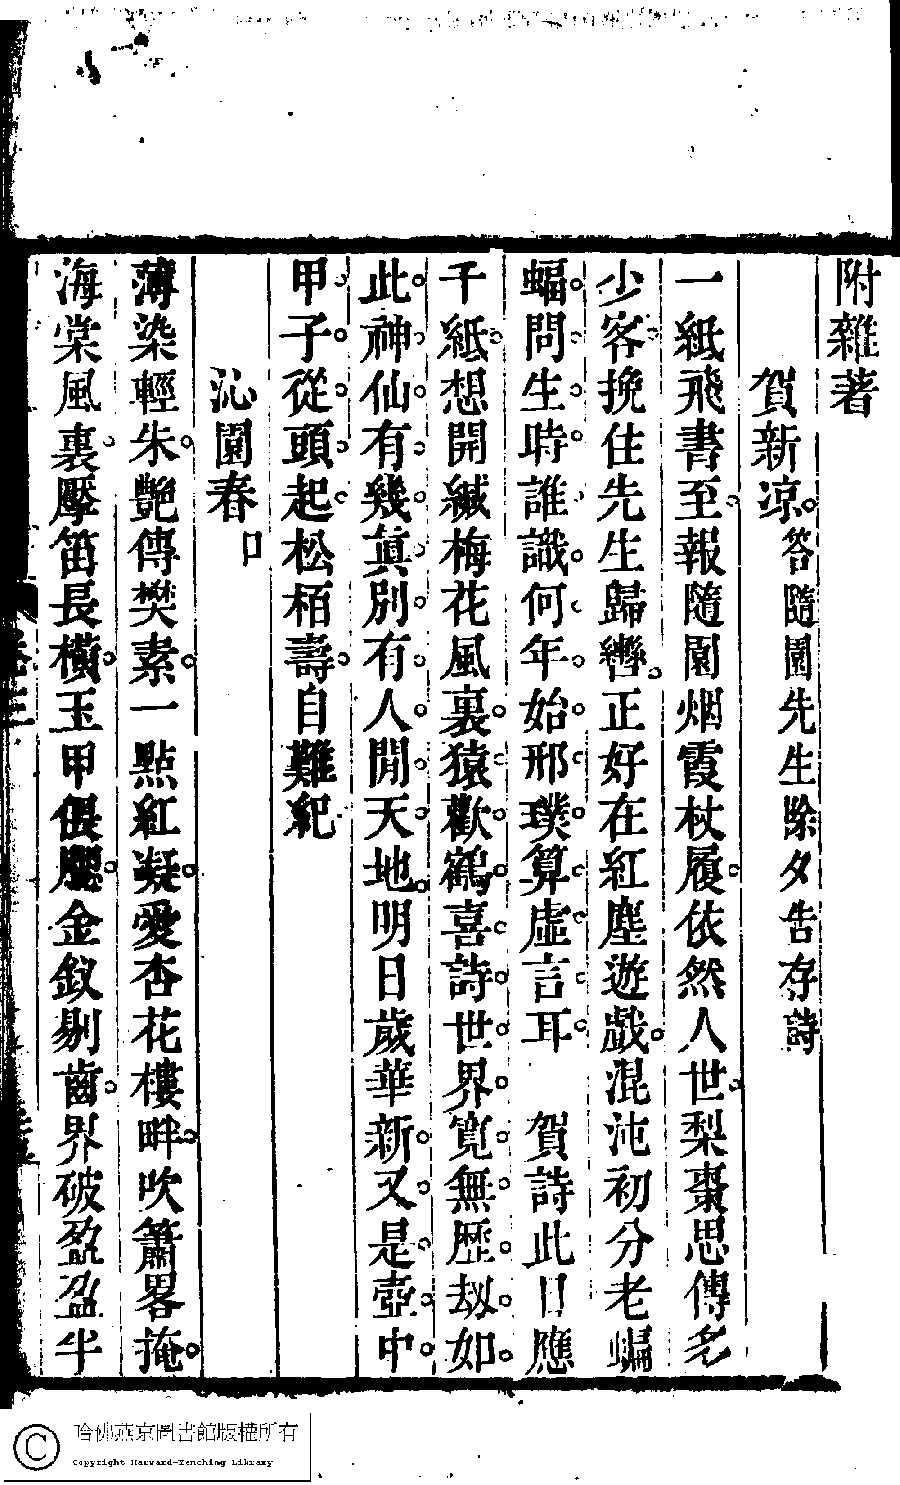 附雜著
賀新凉答隨園先生除夕告存詩
一紙飛書至報隨園烟霞杖履依然人世梨棗思傳多
少客挽住先生歸轡正好在紅塵遊戱混沌初分老蝙
蝠問生時誰識何年始邢璞算虛言耳　賀詩此日應
千紙想開緘梅花風裏猿歡鶴喜詩世界寛無歷刼如
此神仙有幾眞別有人間天地明日歲華新又是壺中
甲子從頭起松栢壽自難紀
沁園春口
薄染輕朱艷傳樊素一點紅凝愛杏花樓畔吹簫畧掩
海棠風裏擪笛長橫玉甲偎金釵剔齒界破盈盈半
卷三
哈佛燕京圖書館版權所有
Copyright Harvard-Yenching Library